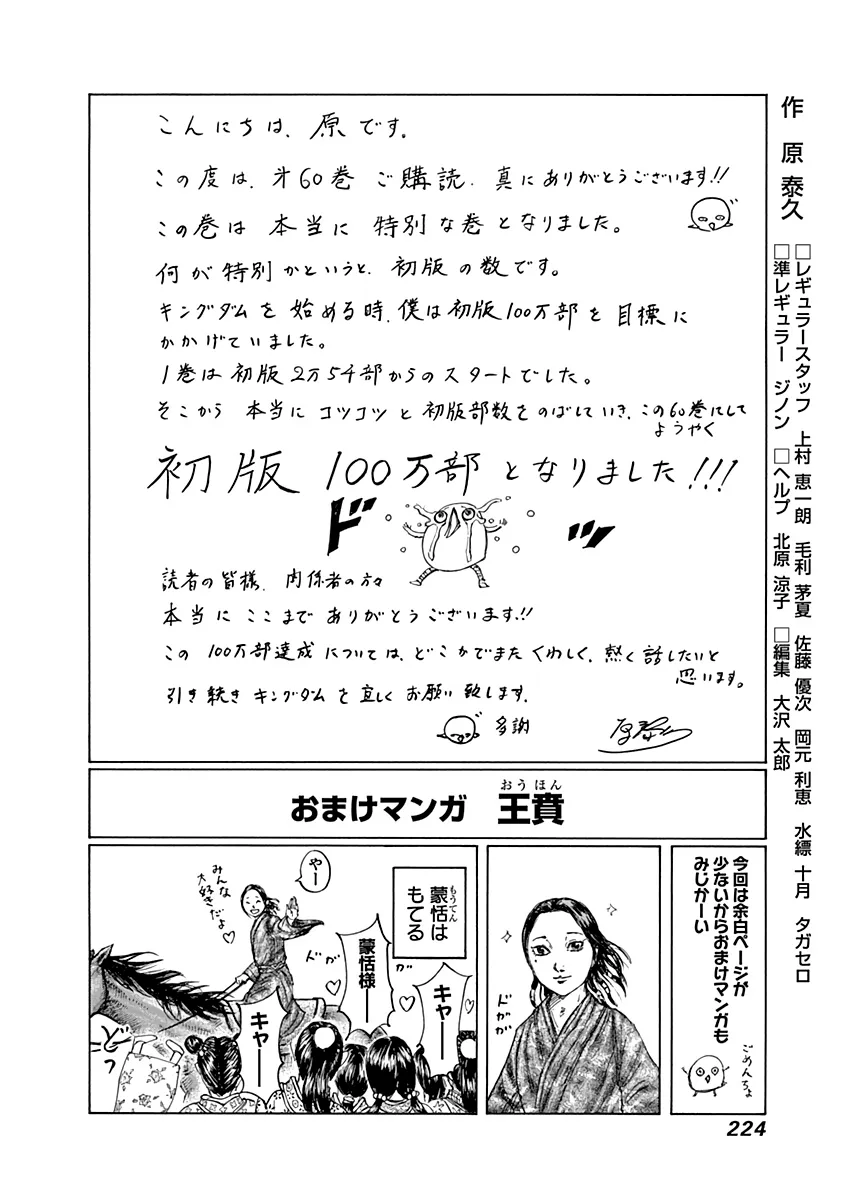 作　原　泰久
□レギュラースタッフ　上村 恵一朗　毛利 茅夏　佐藤 優次　岡元 利恵　水縹 十月　タガセロ
□準レギュラー　ジノン　□ヘルプ　北原 涼子　□編集　大沢 太郎
こんにちは、原です。
この度は、㐧60巻 ご購読、真にありがとうございます!!
この巻は 本当に 特別な巻となりました。
何が特別かというと、初版の数です。
キングダムを始める時、僕は初版100万部を目標に
かかげていました。
1巻は初版2万5千部からのスタートでした。
そこから 本当に コツコツと初版部数をのばしていき、この60巻にして
ようやく
初版 100万部となりました!!!
ド ッ
読者の皆様、関係者の方々
本当に ここまで ありがとうございます!!
この 100万部達成については、どこかでまた くわしく、熱く話したいと
思います。
引き続き キングダムを宜しくお願い致します。
多謝
原泰久
おまけマンガ　王賁
おうほん
今回は余白ページが
少ないからおまけマンガも
みじかーい
ごめんちょ
ドガガ
蒙恬は
もてる
もうてん
やー
みんな
大好きだよ♡
ドガ
ガ
キャー
蒙恬様ー
キャー
どっ
224